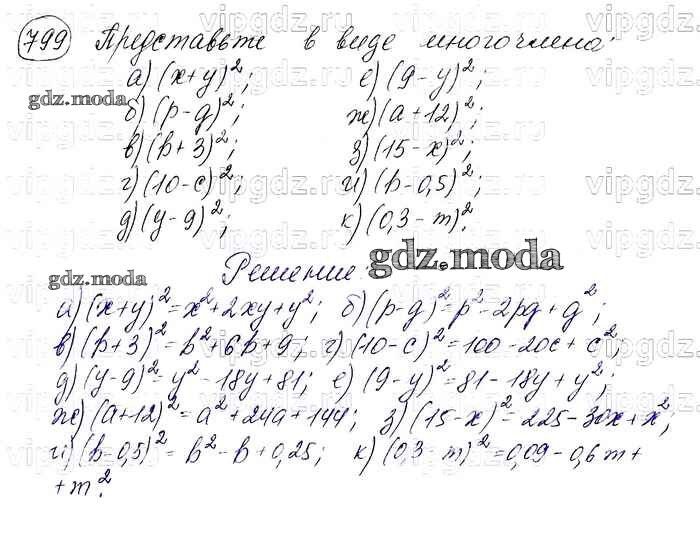 799 Представьте в виде многочлена:
а) (x+y)²; е) (9-y)²;
б) (p-g)²; ж) (a+12)²;
в) (b+3)²; з) (15-x)²;
г) (10-c)²; и) (b-0,5)²;
д) (y-9)²; к) (0,3-m)².
Решение.
а) (x+y)²=x²+2xy+y²; б) (p-g)²=p²-2pg+g²;
в) (b+3)²=b²+6b+9; г) (10-c)²=100-20c+c²;
д) (y-9)²=y²-18y+81; е) (9-y)²=81-18y+y²;
ж) (a+12)²=a²+24a+144; з) (15-x)²=225-30x+x²;
и) (b-0,5)²=b²-b+0,25; к) (0,3-m)²=0,09-0,6m+
+m².
gdz.moda
gdz.moda
gdz.moda
vipgdz.ru